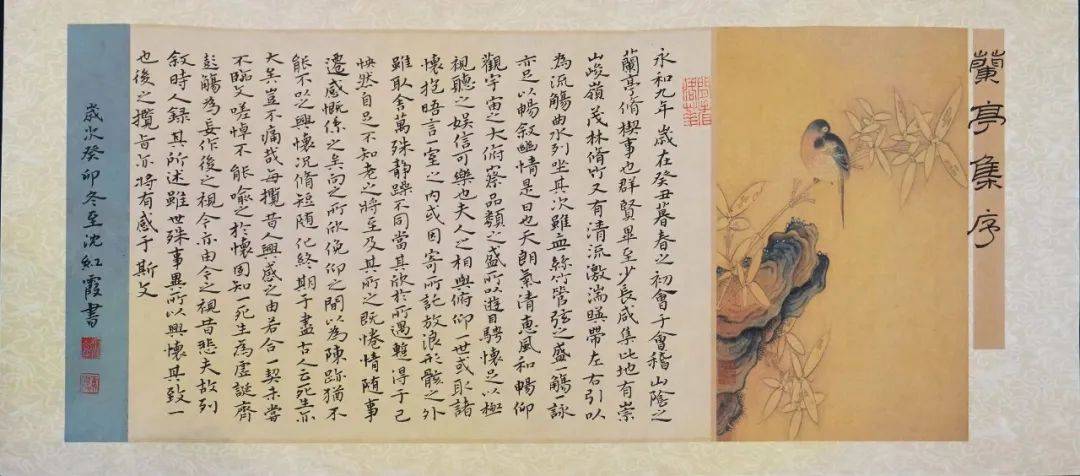 蘭亭集序
永和九年歲在癸丑暮春之初會于會稽山陰之
蘭亭脩楔事也群賢畢至少長咸集此地有崇
山峻嶺茂林脩竹又有清流激湍暎帶左右引以
為流觴曲水列坐其次雖無絲竹管弦之盛一觴一詠
亦足以暢叙幽情是日也天朗氣清惠風和暢仰
觀宇宙之大俯察品類之盛所以遊目騁懷足以極
視聽之娛信可樂也夫人之相與俯仰一世或取諸
懷抱晤言一室之內或因寄所託放浪形骸之外
雖取舍萬殊靜躁不同當其欣於所遇蹔得于己
怏然自足不知老之將至及其所之既惓情隨事
遷感慨係之矣向之所欣俛仰之間以為陳跡猶不
能不以之興懷況脩短隨化終期于盡古人云死生亦
大矣豈不痛哉每攬昔人興感之由若合一契未嘗
不臨文嗟悼不能喻之於懷固知一死生為虛誕齊
彭觴為妄作後之視今亦由今之視昔悲夫故列
叙時人錄其所述雖世殊事異所以興懷其致一
也後之攬者亦將有感于斯文
歲次癸卯冬至沈紅霞書